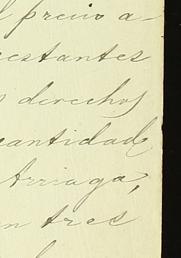 l precio a-
restantes
s derechos
cantidad
Arriaga,
en tres